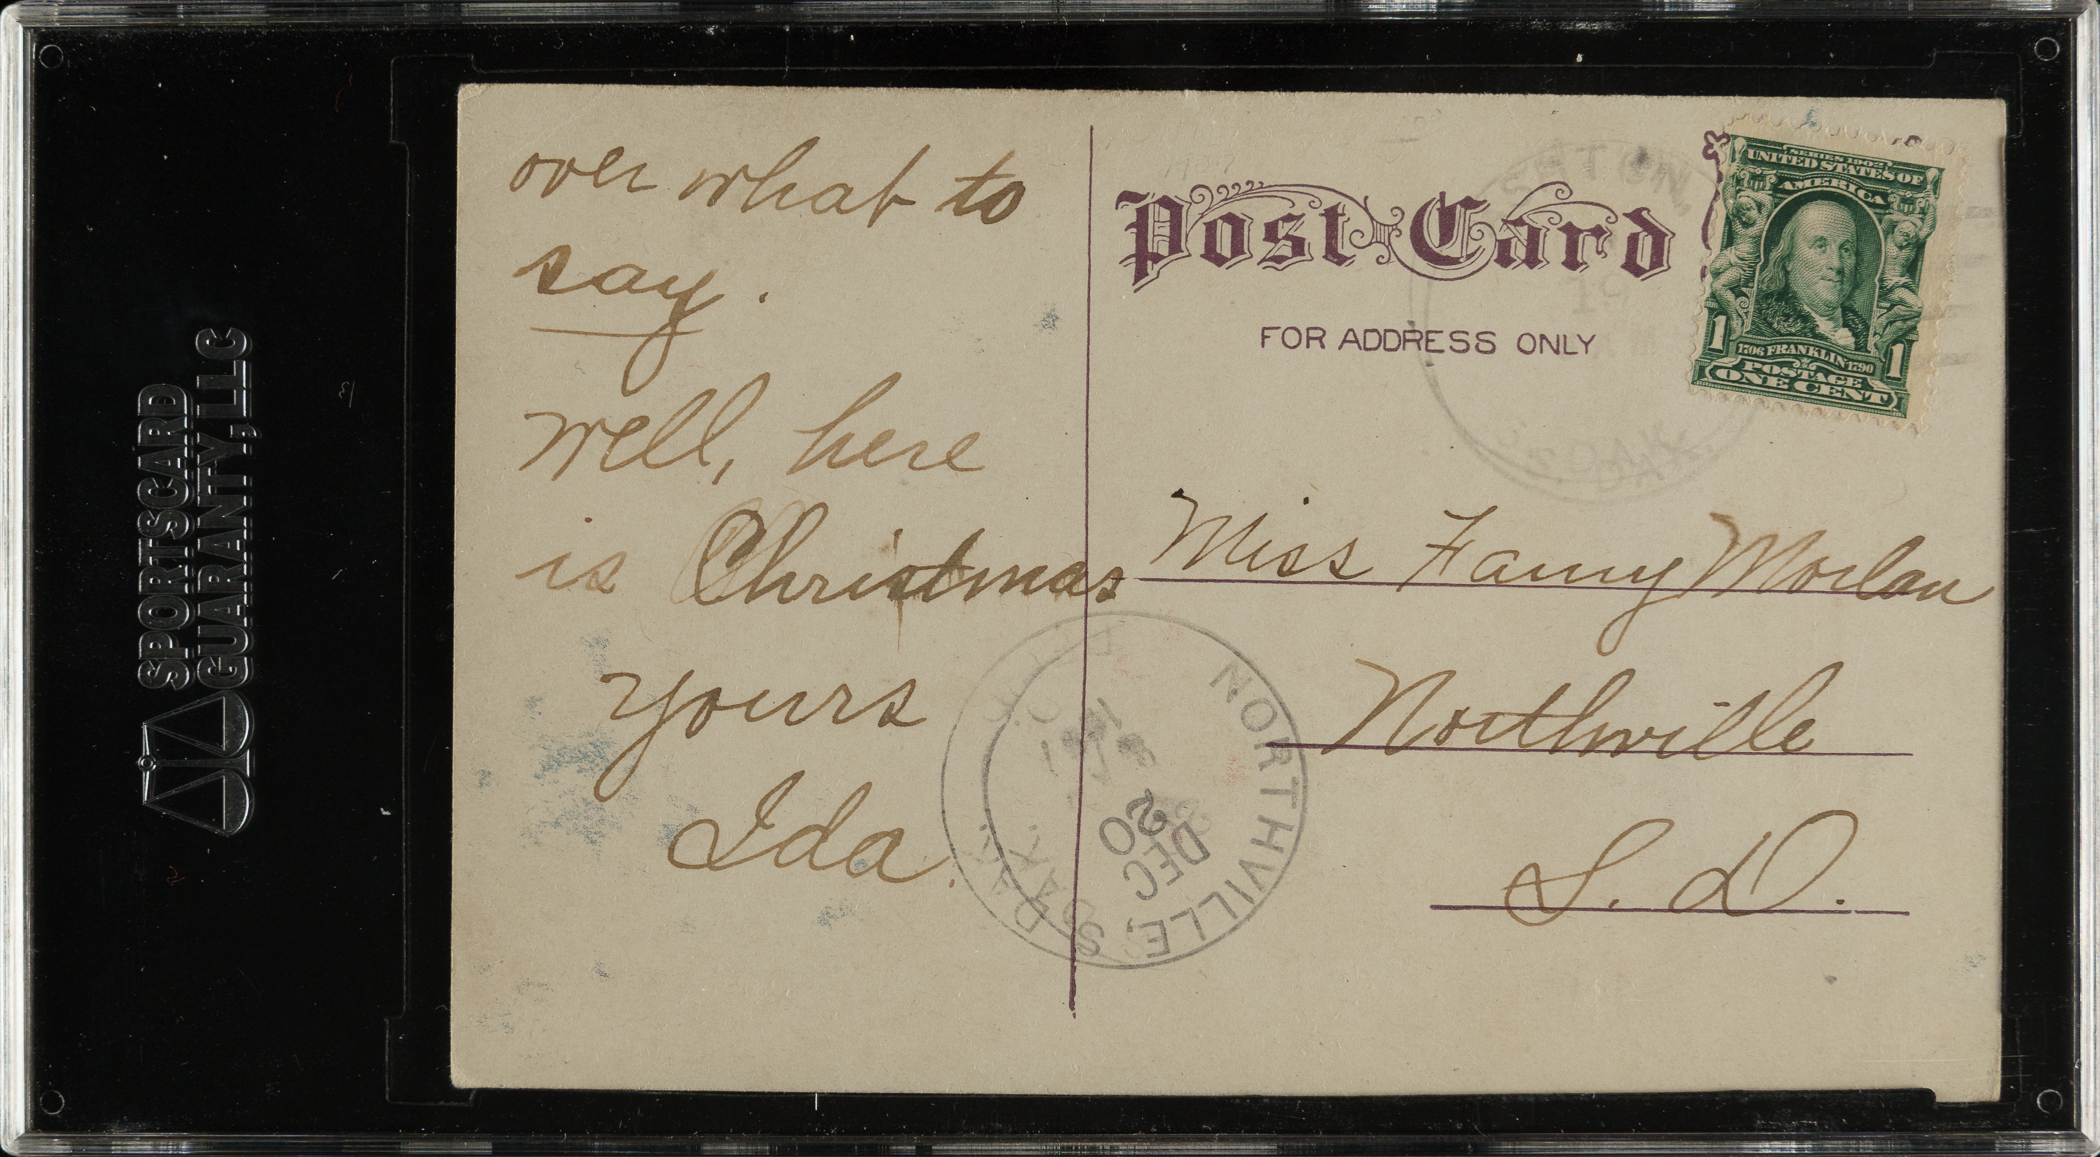 SPORTSCARD
GUARANTY, LLC
over what to
say.
Well, here
is Christmas
Yours
Ida.
Post Card
FOR ADDRESS ONLY
SERIES 1902
UNITED STATES OF
AMERICA
1 1706 FRANKLIN 1790 1
POSTAGE
ONE CENT
S. DAK.
Miss Fanny Morlan
Northville
S. D.
NORTHVILLE, S. DAK.
DEC
20